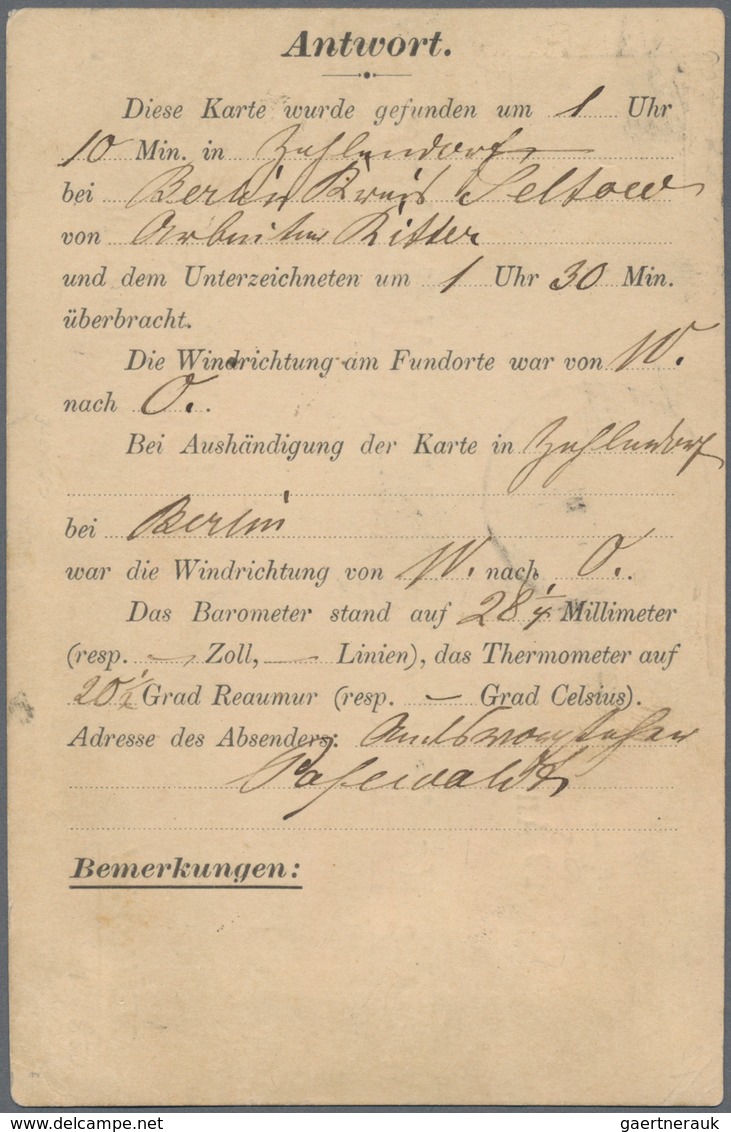 Antwort.
Diese Karte wurde gefunden um 1 Uhr
10 Min. in Zehlendorf
bei Berlin Kreis Teltow
von Arbeiter Ritter
und dem Unterzeichneten um 1 Uhr 30 Min.
überbracht.
Die Windrichtung am Fundorte war von W.
nach O.
Bei Aushändigung der Karte in Zehlendorf
bei Berlin
war die Windrichtung von W. nach O.
Das Barometer stand auf 28 1/4 Millimeter
(resp. — Zoll, — Linien), das Thermometer auf
20 1/2 Grad Reaumur (resp. — Grad Celsius).
Adresse des Absenders: Amtsvorsteher
Pasewaldt
Bemerkungen:
delcampe.net
gaertnerauk